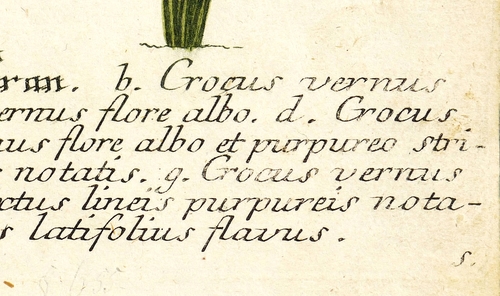 ran. b. Crocus vernus
ernus flore albo. d. Crocus
us flore albo et purpureo stri-
notatis. g. Crocus vernus
ctus lineis purpureis nota-
s latifolius flavus.
s.